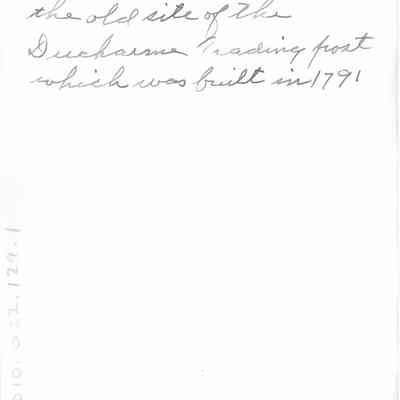 the old site of the
Ducharme Trading post
which was built in 1791